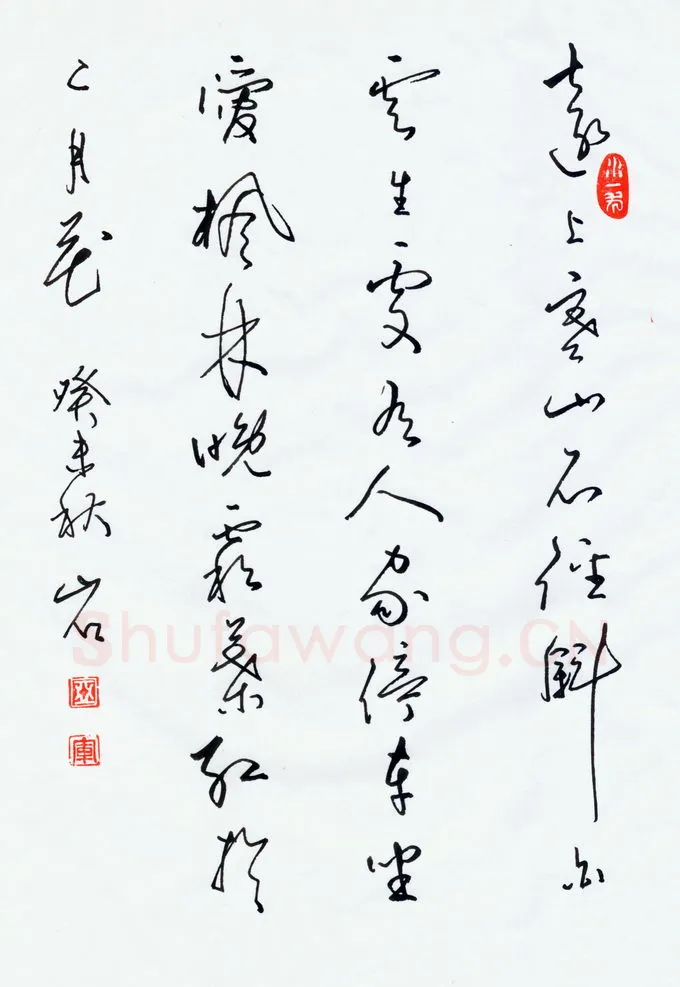 遠上寒山石徑斜白
雲生處有人家停車坐
愛楓林晚霜葉紅於
二月花 癸未秋 岩
Shufawang.CN